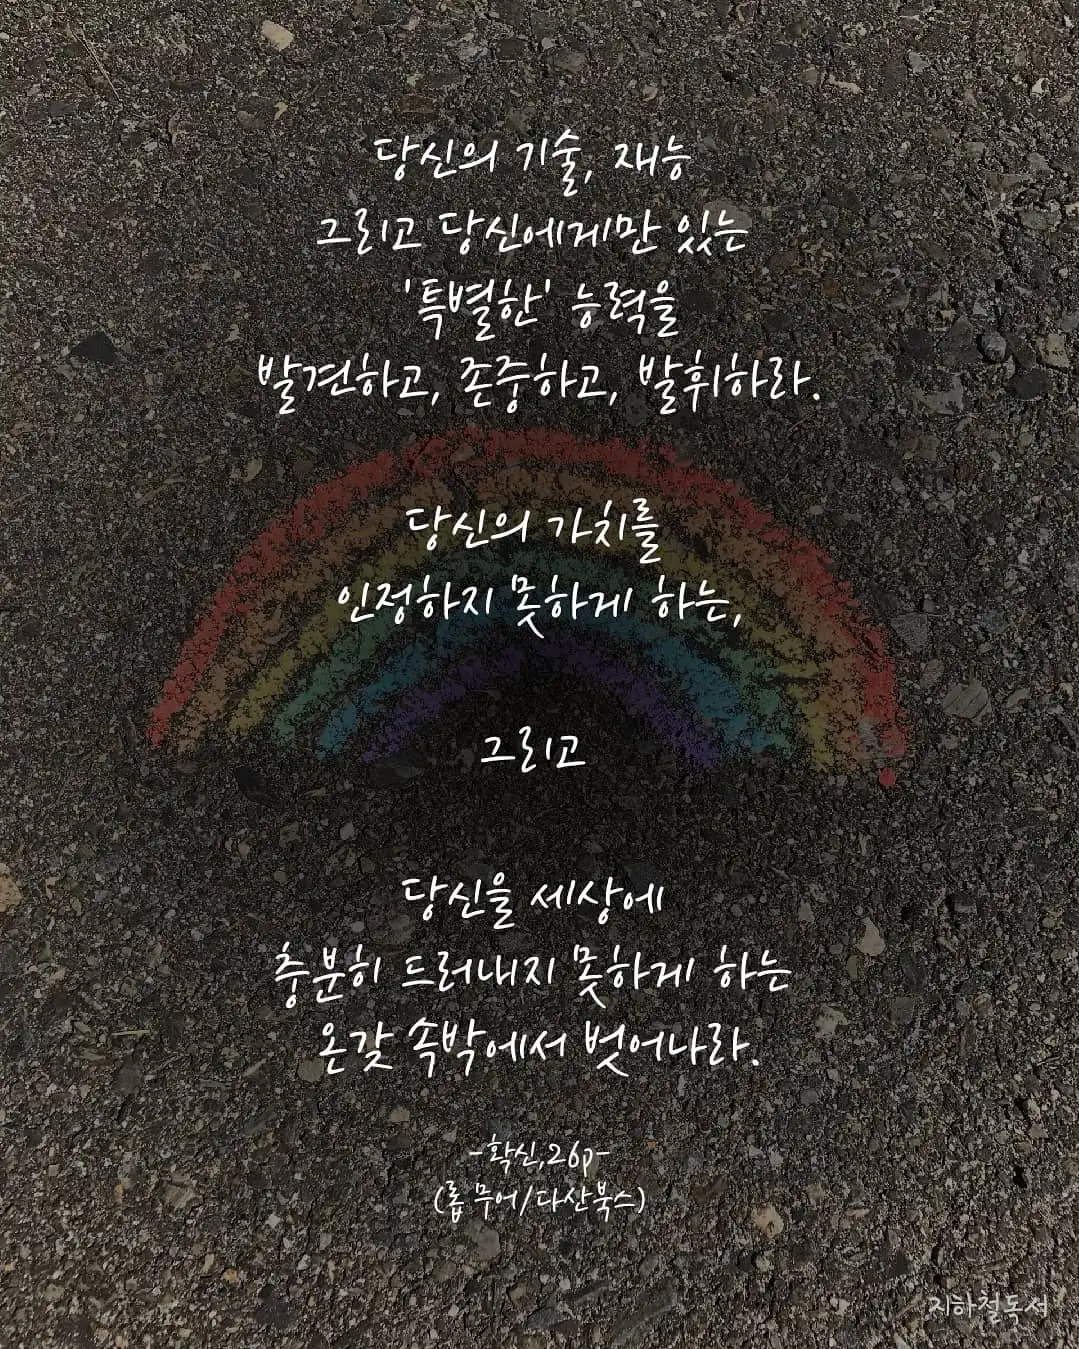 당신의 기술, 재능
그리고 당신에게만 있는
'특별한' 능력을
발견하고, 존중하고, 발휘하라.
당신의 가치를
인정하지 못하게 하는,
그리고
당신을 세상에
충분히 드러내지 못하게 하는
온갖 속박에서 벗어나라.
-확신,26p-
(롭 무어/다산북스)
지하철독서